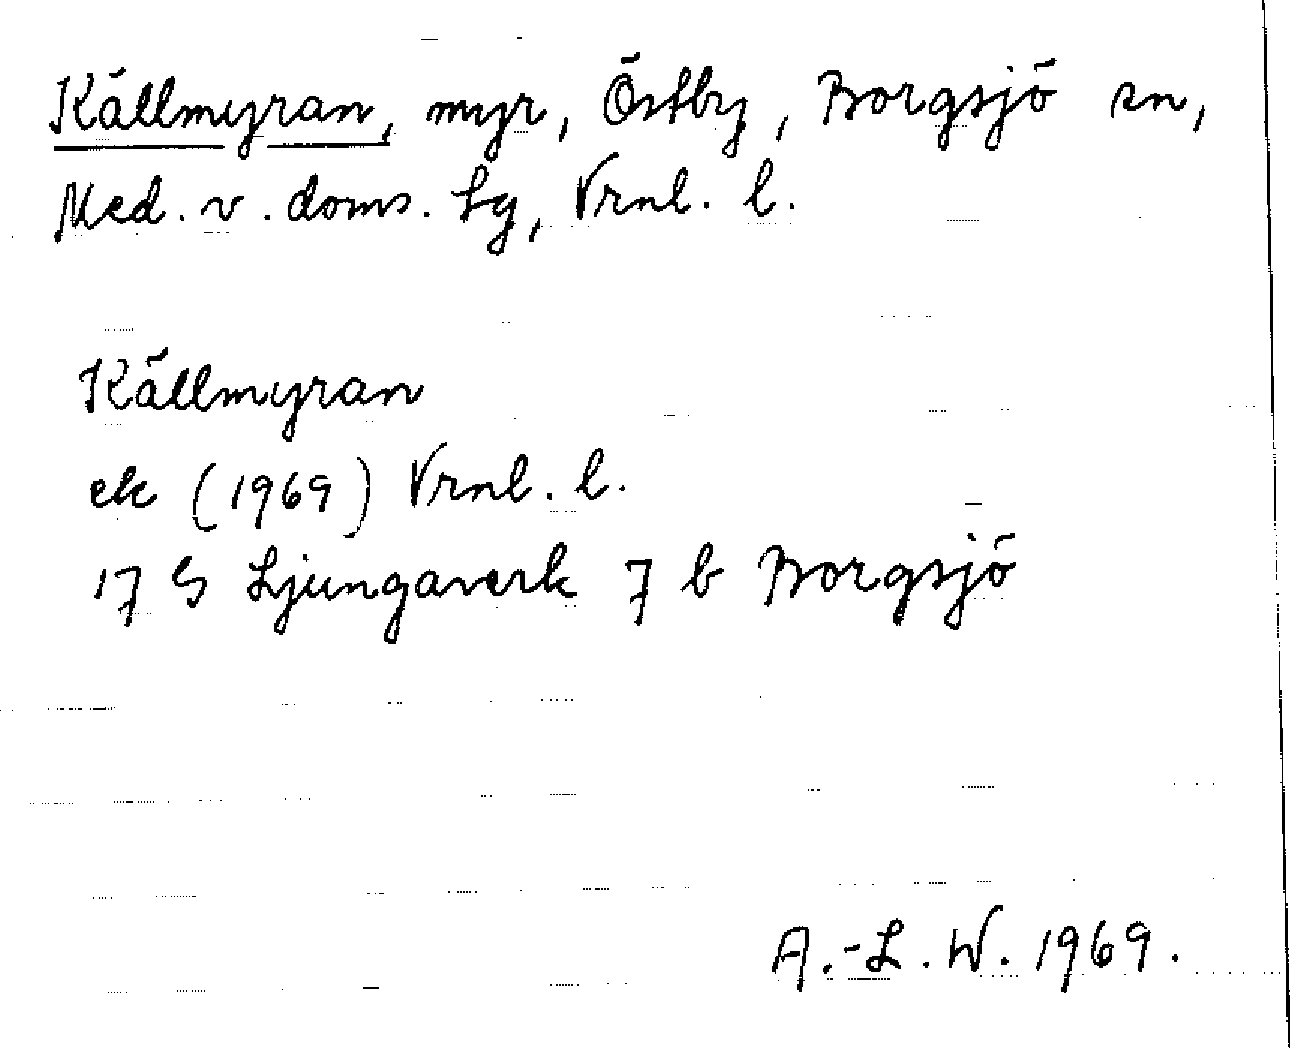 Källmyran, myr, Östby, Borgsjö sn,
Med. v. doms. Lg, Vrnl. l.
Källmyran
ek (1969) Vrnl. l.
17 G Ljungaverk 7 b Borgsjö
A.-L. W. 1969.